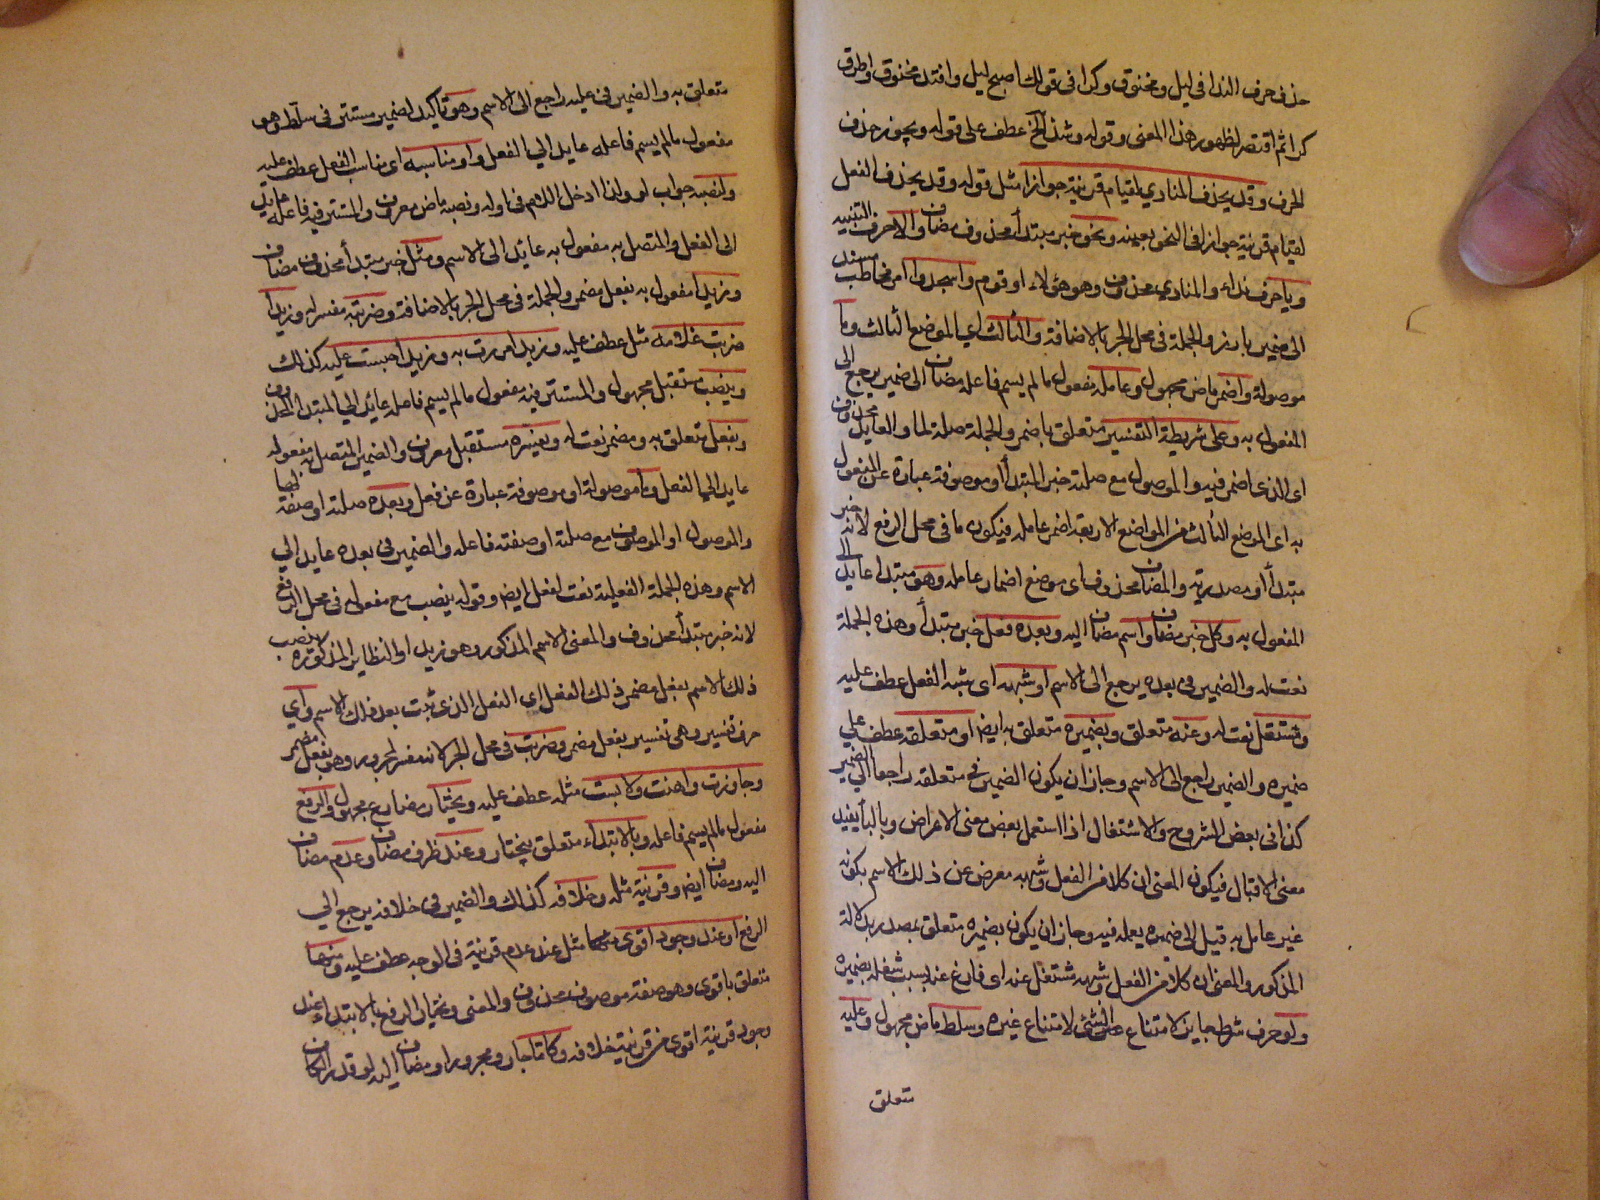 حذف حرف الندا في ليل ومخنوق وكرا في قولك اصبح ليل وافتد مخنوق واطرق
كرا ثم اقتصر لظهور هذا المعنى وقوله وشذ الخ عطف على قوله ويجوز حذف
الحرف وقد يحذف المنادي لقيام قرينة جوازا مثل قوله وقد يحذف الفعل
لقيام قرينة جوازا في النحو بعينه ونحو خبر مبتدأ محذوف مضاف والا حرف التنبيه
ويا حرف نداء والمنادي محذوف وهو هؤلاء او قوم واسجدوا امر مخاطب مسند
الى ضمير بارز والجملة في محل الجر بالاضافة والثالث اي الموضع الثالث وما
موصولة واضمر ماض مجهول وعامله مفعول مالم يسم فاعله مضاف الى ضمير يرجع الى
المفعول به وعلى شريطة التفسير متعلق باضمر والجملة صلة لما والعايد محذوف
اى الذى اضمر فيه والموصول مع صلته خبر المبتدأ او موصوفة عبارة عن المفعول
به اى الموضع الثالث من المواضع الاربعة اضمر عامله فيكون ما في محل الرفع لانه خبر
مبتدأ او مصدرية والمضاف محذوف اى موضع اضمار عامله وهو مبتدا عايد الى
المفعول به وكل خبر مضاف واسم مضاف اليه وبعده فعل خبر مبتدأ وهذه الجملة
نعت له والضمير في بعده يرجع الى الاسم او شبهه اى شبه الفعل عطف عليه
ومشتغل نعت له وعنه متعلق وبضميره متعلق به ايضا او متعلقه عطف علي
ضميره والضمير راجع الى الاسم وجاز ان يكون الضمير في متعلقه راجعا الي الضمير
كذا في بعض الشروح والاشتغال اذا استعمل بعن معنى الاعراض وبالباء يفيد
معنى الاقبال فيكون المعنى ان كلا من الفعل وشبهه معرض عن ذلك الاسم بكونه
غير عامل به قبل الى ضميره يعمله فيه وجاز ان يكون بضميره متعلق بمصدر بدلالة
المذكور والمعنى ان كلا من الفعل وشبهه مشتغل عنه اى فارغ عنه بسبب شغله بضميره
ولو حرف شرط جاء لامتناع الشئ لامتناع غيره وسلط ماض مجهول وعليه
متعلق
متعلق به والضمير في عليه راجع الى الاسم وهو تاكيد لضمير مستتر في سلط وهو
مفعول مالم يسم فاعله عايد الي الفعل واو مناسبه اى مناسب الفعل عطف عليه
ولنصبه جواب لو ولذا ادخل اللام في اوله ونصبه ماض معروف والمستتر فيه فاعله عايد
الى الفعل والمتصل به مفعول به عايد الى الاسم ومثل خبر مبتدأ محذوف مضاف
وزيدا مفعول به بفعل مضمر والجملة في محل الجر بالاضافة وضربته مفسره وزيدا
ضربت غلامه مثل عطف عليه وزيدا مررت به وزيدا حبست عليه كذلك
وينصب مستقبل مجهول والمستتر فيه مفعول مالم يسم فاعله عايد الي المبتدا المحذوف
وبفعل متعلق به ومضمر نعت له ويفسره مستقبل معروف والضمير المتصل به مفعوله
عايد الى الفعل وما موصولة او موصوفة عبارة عن فعل وبعده صلة او صفة لها
والموصول او الموصوف مع صلته او صفته فاعله والضمير في بعده عايد الي
الاسم وهذه الجملة الفعلية نعت لفعل ايضا وقوله ينصب مع مفعوله في محل الرفع
لانه خبر مبتدأ محذوف والمعنى الاسم المذكور وهو زيد او النظاير المذكورة ينصب
ذلك الاسم بفعل مضمر ذلك الفعل اي الفعل الذى ثبت بعد ذلك الاسم واي
حرف تفسير وهي تفسير بفعل مضمر وضربت في محل الجر لانه مفسر لمجرور وهو بفعل مضمر
وجاوزت واهنت ولابست مثله عطف عليه ويختار مضارع مجهول والرفع
مفعول مالم يسم فاعله وبالابتداء متعلق بيختار وعند ظرف مضاف وعدم مضاف
اليه ومضاف ايضا وقرينة مثله وخلافه كذلك والضمير في خلافه يرجع الي
الرفع او عند وجود اقوى منها مثل عند عدم قرينة في الوجه عطف عليه ومنها
متعلق باقوى وهو صفة موصوف محذوف والمعنى ويختار الرفع بالابتداء عند
وجود قرينة اقوى من قرينة خلافه وكاما جار ومجرور او مضاف اليه لو قدر الكاف